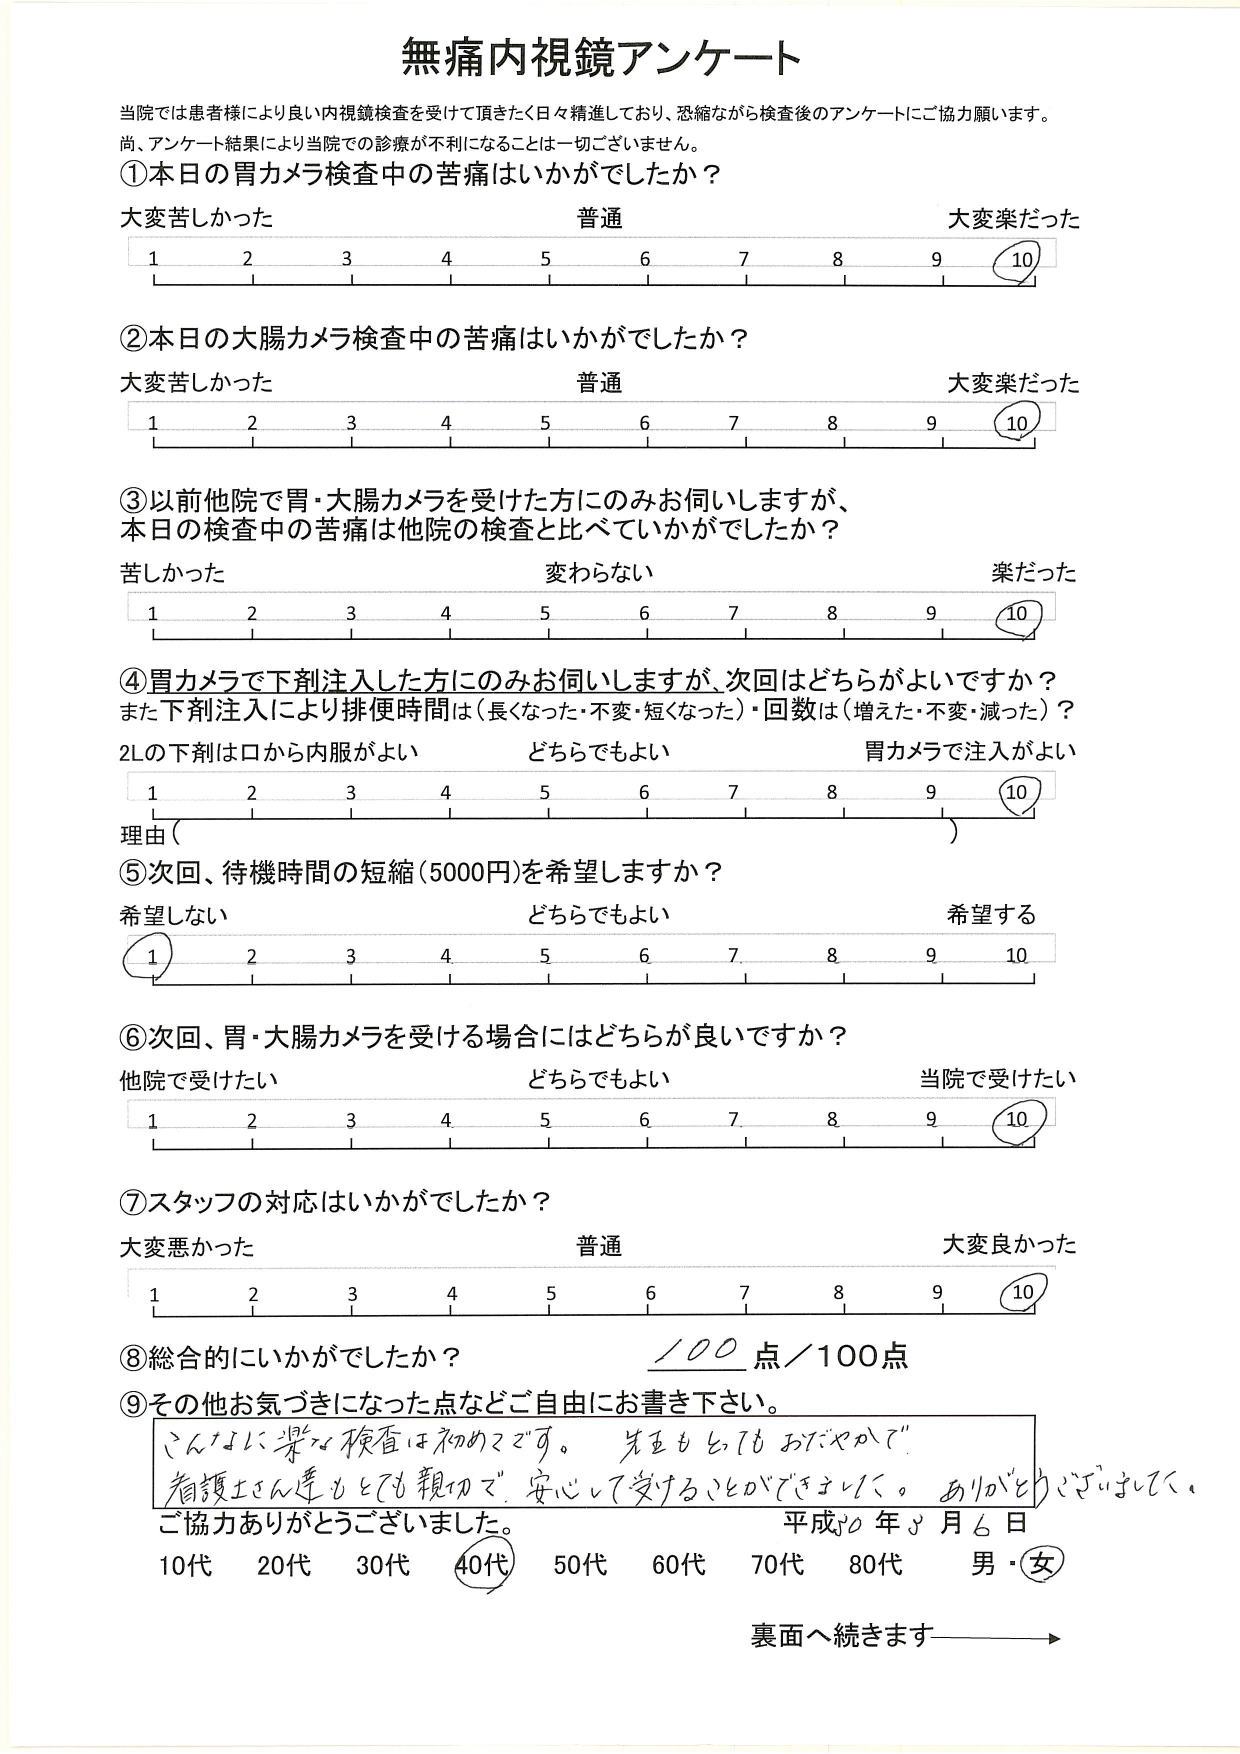 無痛内視鏡アンケート
当院では患者様により良い内視鏡検査を受けて頂きたく日々精進しており、恐縮ながら検査後のアンケートにご協力願います。
尚、アンケート結果により当院での診療が不利になることは一切ございません。
①本日の胃カメラ検査中の苦痛はいかがでしたか？
大変苦しかった 普通 大変楽だった
1 2 3 4 5 6 7 8 9 10
②本日の大腸カメラ検査中の苦痛はいかがでしたか？
大変苦しかった 普通 大変楽だった
1 2 3 4 5 6 7 8 9 10
③以前他院で胃・大腸カメラを受けた方にのみお伺いしますが、
本日の検査中の苦痛は他院の検査と比べていかがでしたか？
苦しかった 変わらない 楽だった
1 2 3 4 5 6 7 8 9 10
④胃カメラで下剤注入した方にのみお伺いしますが、次回はどちらがよいですか？
また下剤注入により排便時間は（長くなった・不変・短くなった）・回数は（増えた・不変・減った）？
2Lの下剤は口から内服がよい どちらでもよい 胃カメラで注入がよい
1 2 3 4 5 6 7 8 9 10
理由（ ）
⑤次回、待機時間の短縮（5000円）を希望しますか？
希望しない どちらでもよい 希望する
1 2 3 4 5 6 7 8 9 10
⑥次回、胃・大腸カメラを受ける場合にはどちらが良いですか？
他院で受けたい どちらでもよい 当院で受けたい
1 2 3 4 5 6 7 8 9 10
⑦スタッフの対応はいかがでしたか？
大変悪かった 普通 大変良かった
1 2 3 4 5 6 7 8 9 10
⑧総合的にいかがでしたか？ 100 点／100点
⑨その他お気づきになった点などご自由にお書き下さい。
こんなに楽な検査は初めてです。 先生もとってもおだやかで
看護士さん達もとても親切で、安心して受けることができました。 ありがとうございました。
ご協力ありがとうございました。 平成30年3月6日
10代 20代 30代 40代 50代 60代 70代 80代 男・女
裏面へ続きます